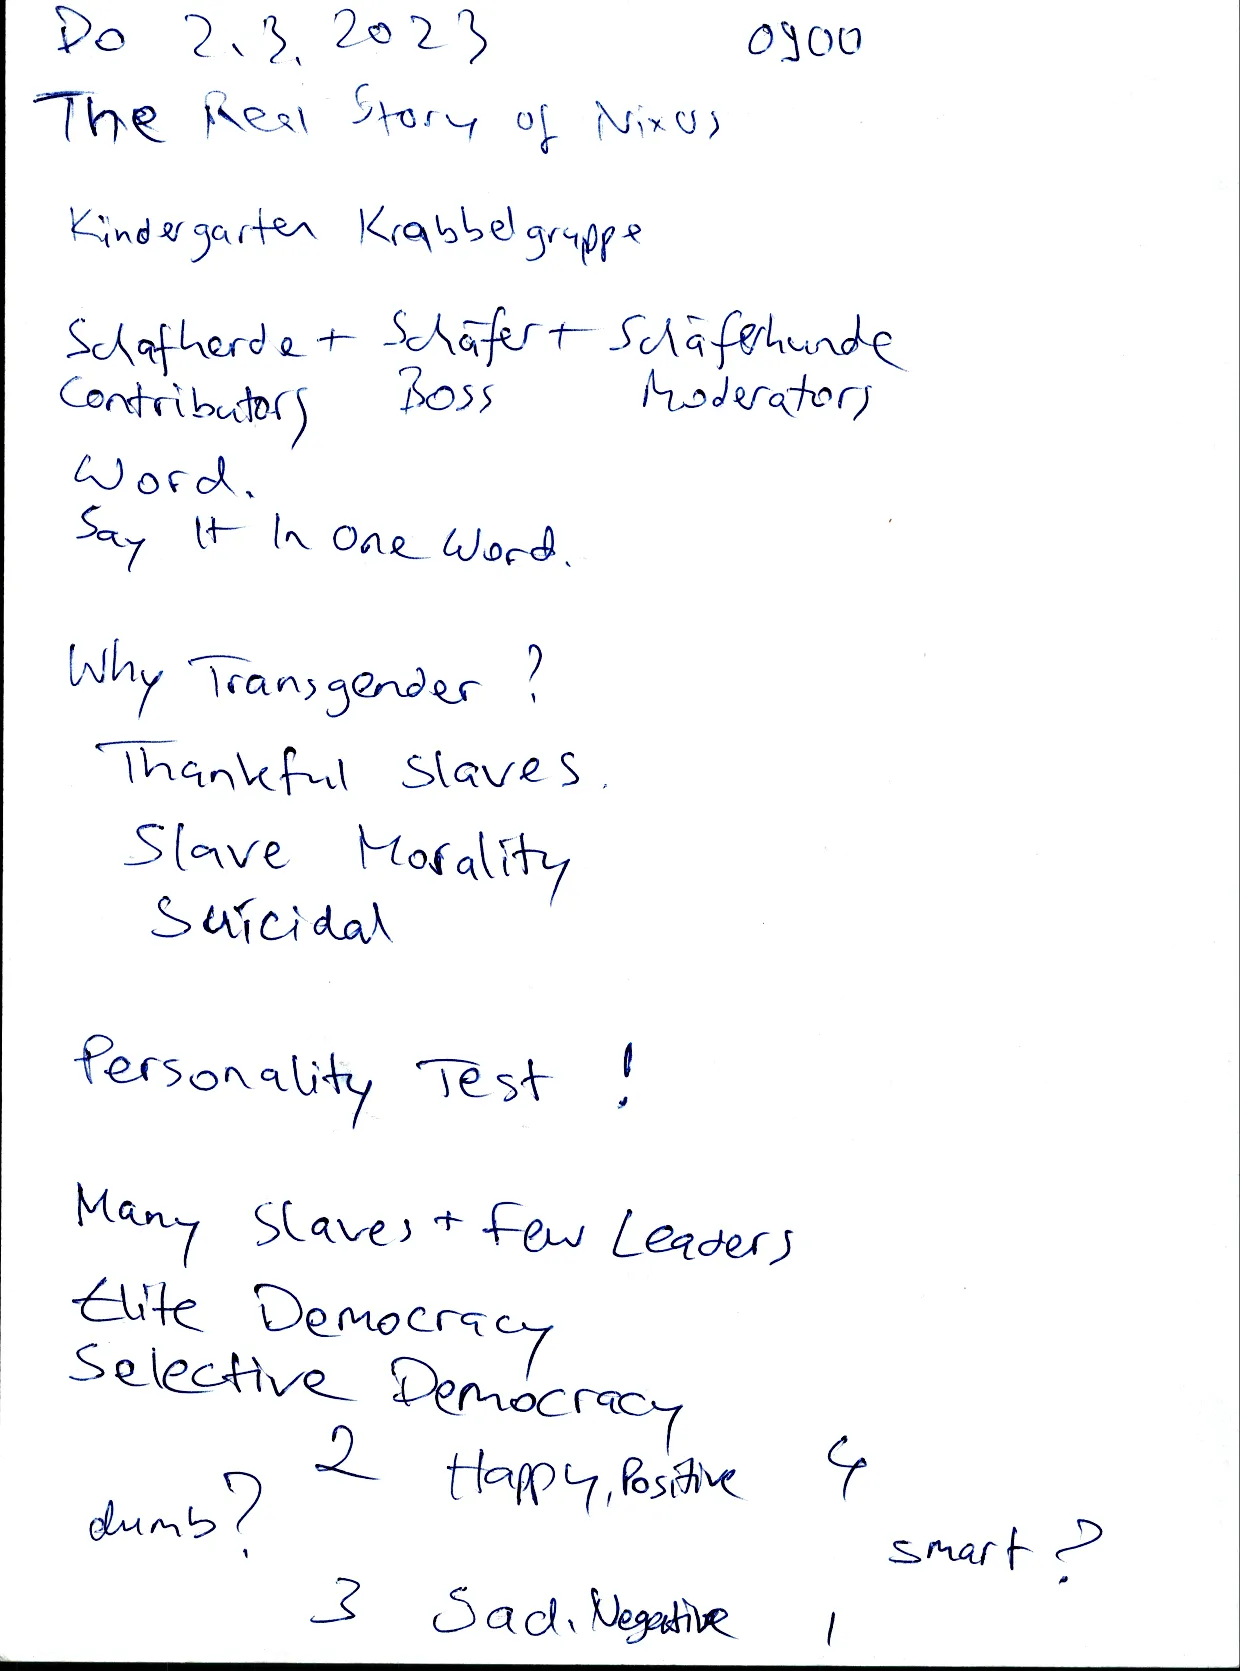 Do 2.3.2023 0900
The Real Story of Nixos
Kindergarten Krabbelgruppe
Schafherde + Schäfer + Schäferhunde
Contributors Boss Moderators
Word.
Say It In One Word.
Why Transgender ?
Thankful Slaves.
Slave Morality
Suicidal
Personality Test !
Many Slaves + Few Leaders
Elite Democracy
Selective Democracy
2 Happy, Positive 4
dumb? smart ?
3 Sad. Negative 1